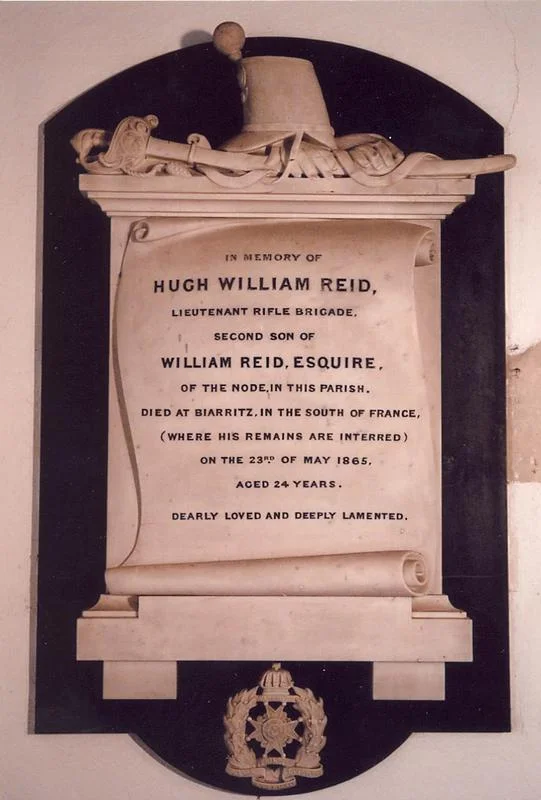 IN MEMORY OF
HUGH WILLIAM REID,
LIEUTENANT RIFLE BRIGADE,
SECOND SON OF
WILLIAM REID, ESQUIRE,
OF THE NODE, IN THIS PARISH.
DIED AT BIARRITZ, IN THE SOUTH OF FRANCE,
(WHERE HIS REMAINS ARE INTERRED)
ON THE 23RD OF MAY 1865,
AGED 24 YEARS.
DEARLY LOVED AND DEEPLY LAMENTED.